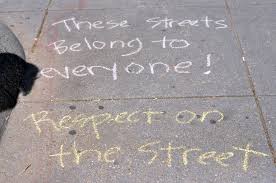 These Streets
Belong to
everyone!
Respect on
the Street